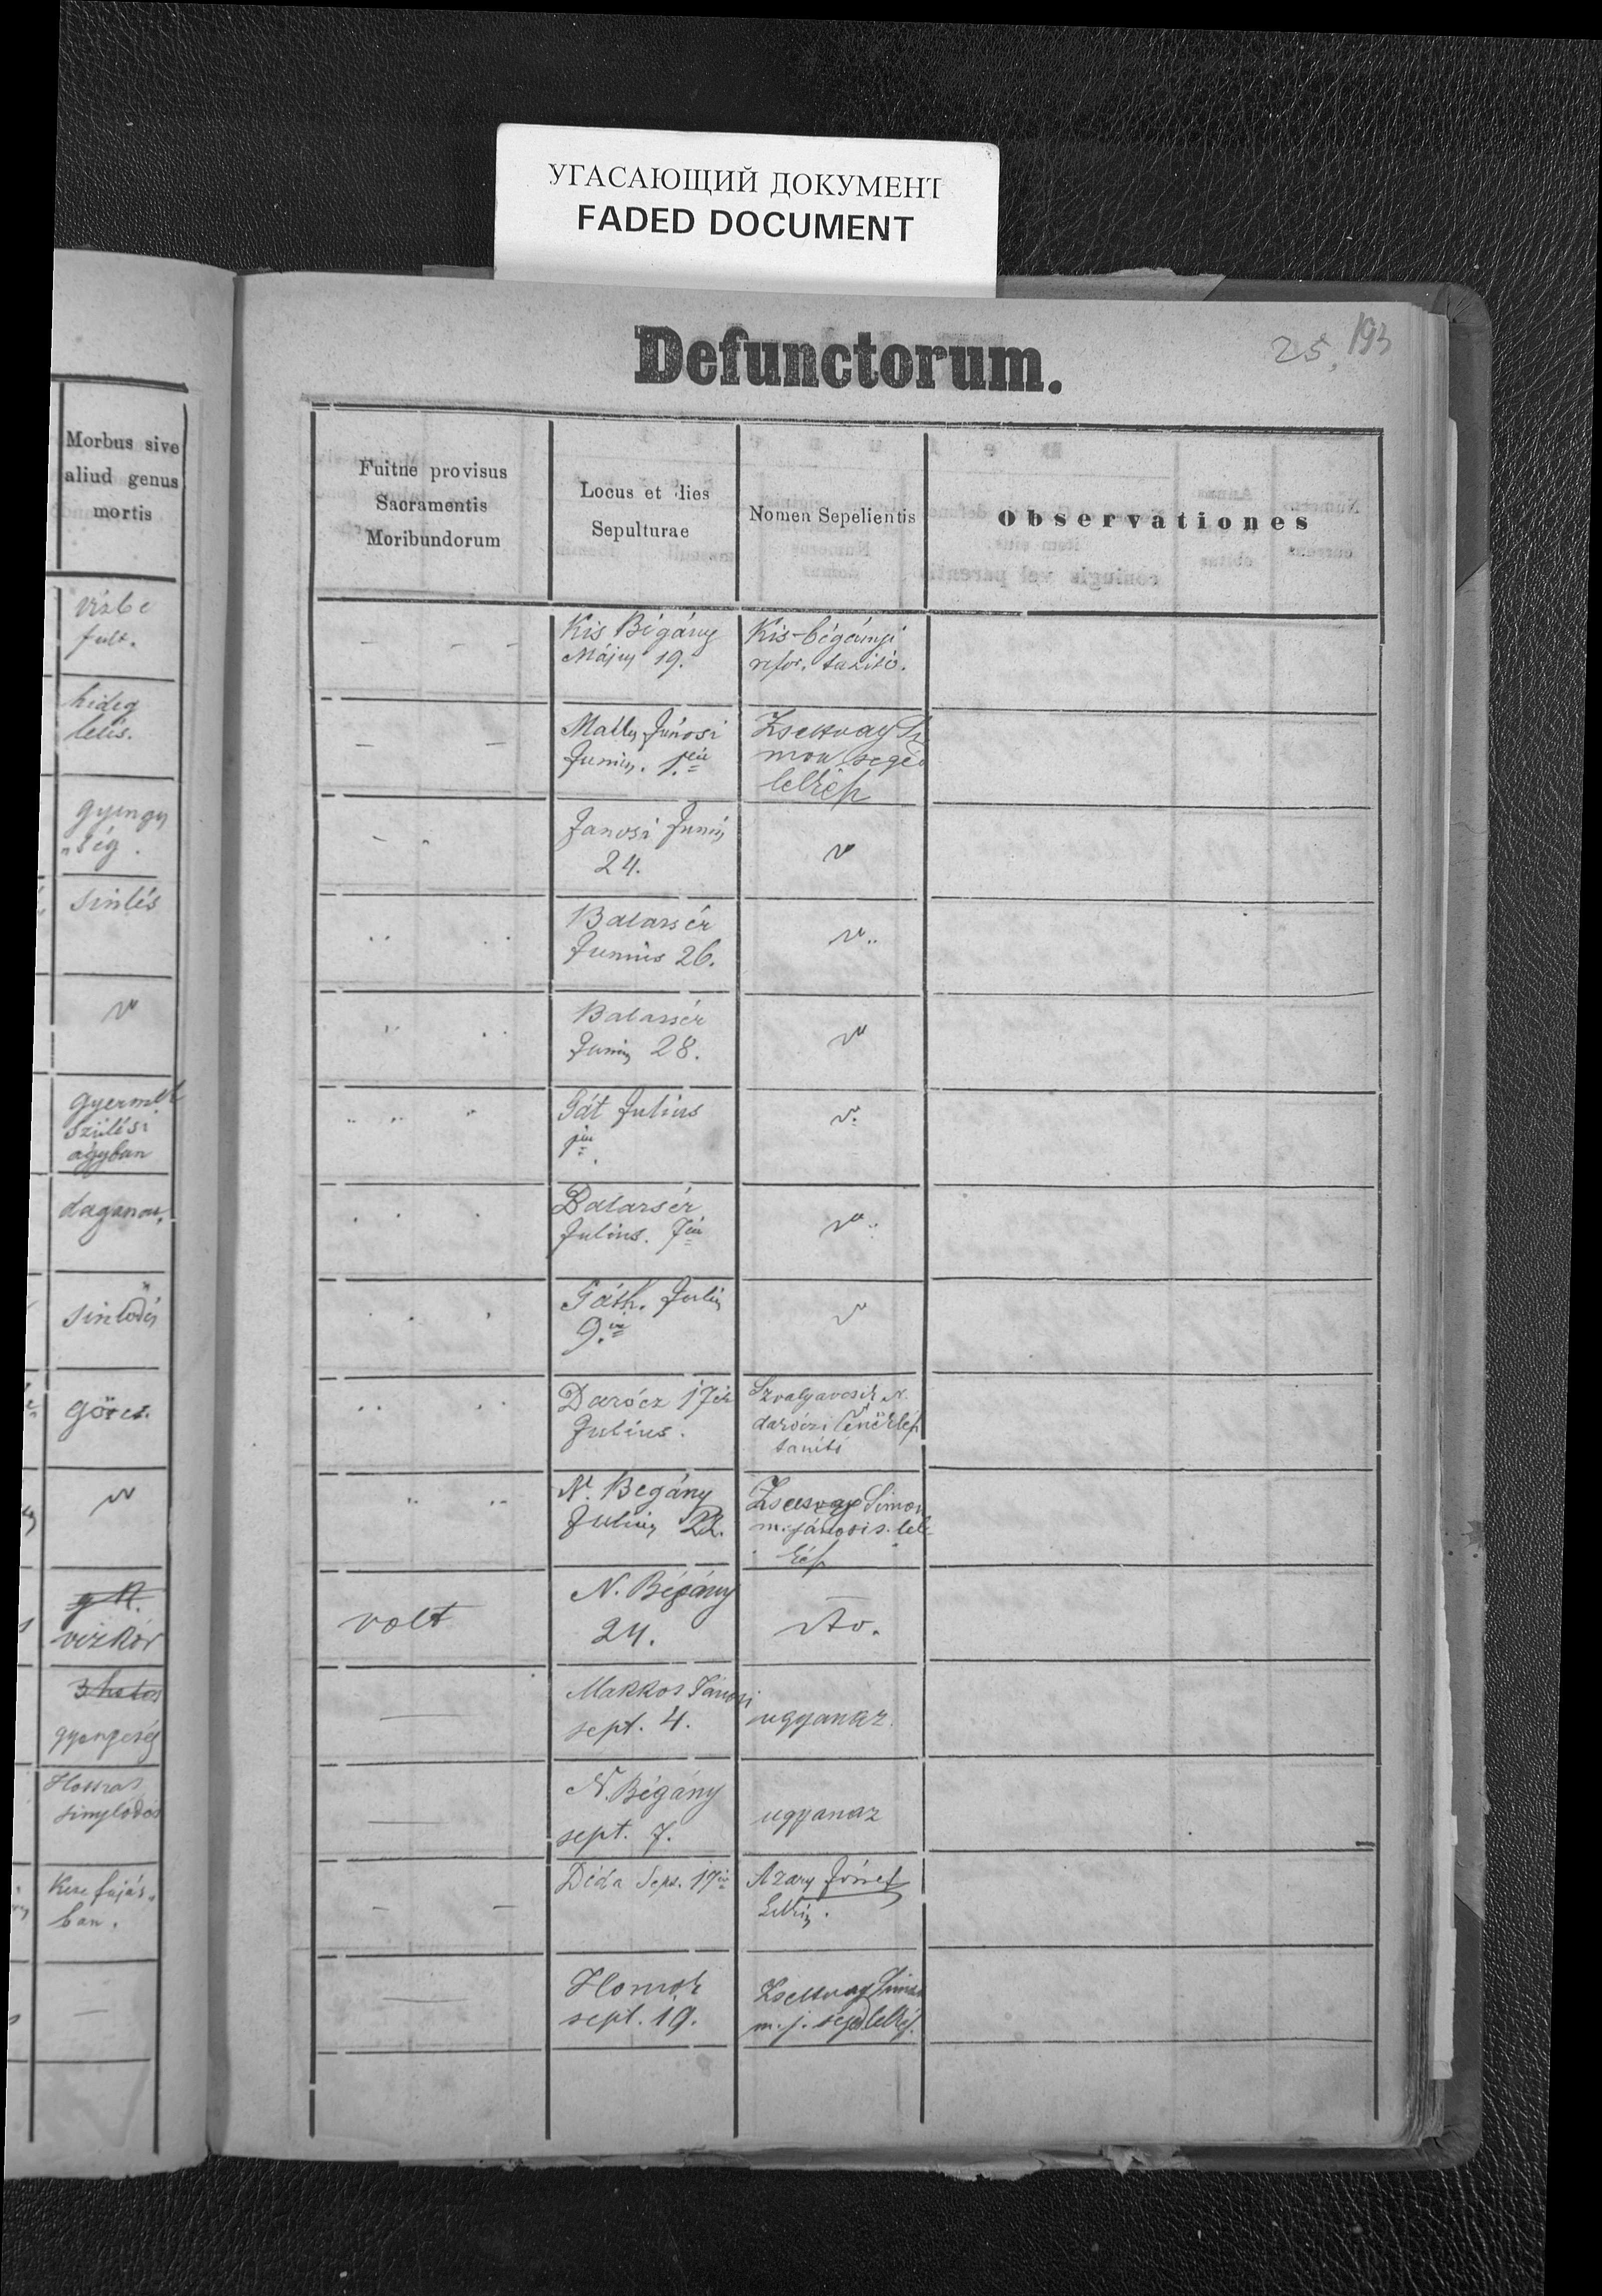 УГАСАЮЩИЙ ДОКУМЕНТ
FADED DOCUMENT
Defunctorum.
25, 193
Morbus sive
aliud genus
mortis
Fuitne provisus
Sacramentis
Moribundorum
Locus et dies
Sepulturae
Nomen Sepelientis
Observationes
vizbe
fult.
Kis Bégány
Május 19.
Kis-bégányi
refor. tanitó.
hideg
lelés.
Junius. 1.
mon segéd
lelkész
gyenge
ség.
Janosi Junius
24.
sinlés
Batarsér
Junius 26.
Batarsér
Junius 28.
gyermek
szülési
ágyban
Gát Julius
Batarsér
Julius. 7én
sinlődés
Gáth. Julius
9.
görcs.
Darócz 17én
Julius.
daróczi
tanító
N. Begány
Julius 22.
Simon
vizkór
volt
N. Bégány
24.
gyengeség
Makkos Jánosi
sept. 4.
ugyanaz
Hosszas
sinylődés
N. Bégány
sept. 7.
ugyanaz
Kezefájás-
ban.
Déda Sept. 17
Azary József
Homok
sept. 19.
Simon
m. j. segédlelkész.